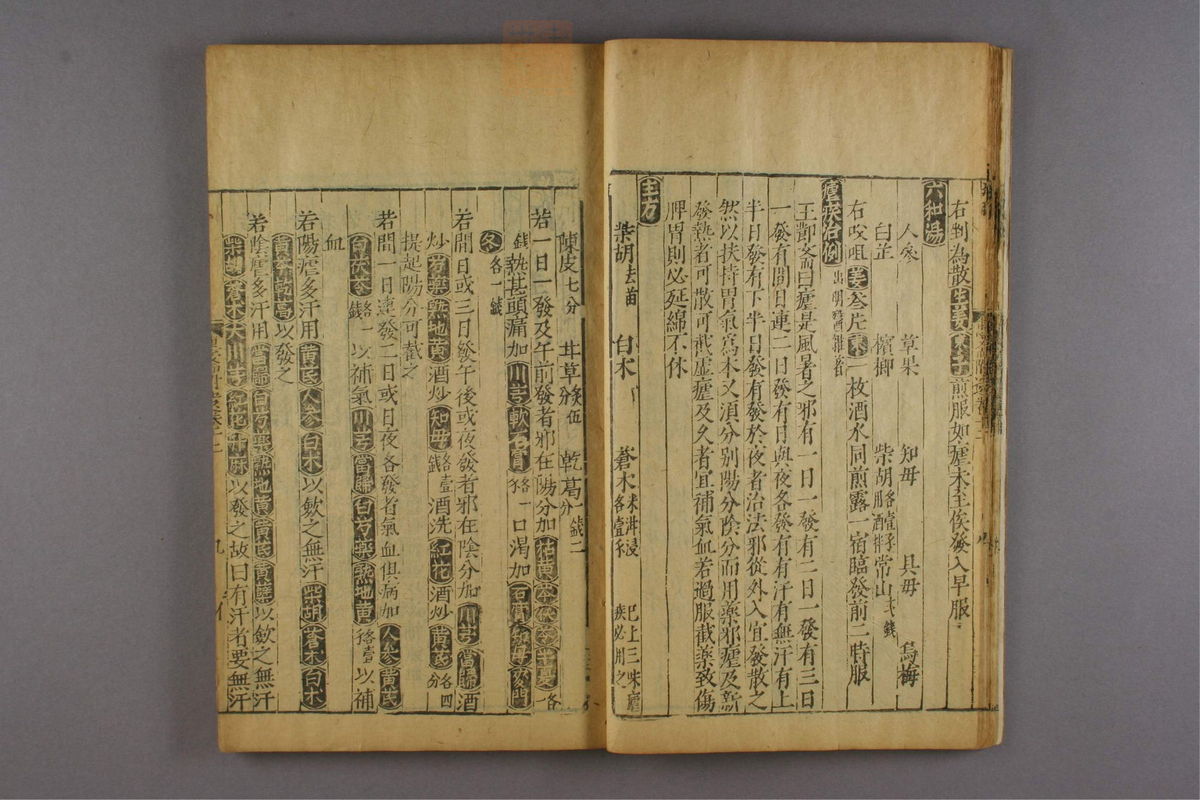 右剉為散生姜棗子煎服如瘧未至俟發入早服
六和湯
人參 草果 知母 貝毋 烏梅
白芷 檳榔 柴胡 各壹錢酒拌 常山 弍錢
右㕮咀姜叁片棗一枚酒水同煎露一宿臨發前二時服
瘧疾治例 出明醫雜著
王都憲曰瘧是風暑之邪有一日一發有二日一發有三日
一發有間日連二日發有日與夜各發有有汗有無汗有上
半日發有下半日發有發於夜者治法邪從外入宜發散之
然以扶持胃氣為本又須分别陽分陰分而用藥邪瘧及新
發熱者可散可截虛瘧及久者宜補氣血若過服截藥致傷
脾胃則必延綿不休
主方
柴胡 去苗 白朮 蒼朮 米泔浸 各壹錢 已上三味瘧疾必用之
陳皮 七分 甘草 炙伍分 乾葛 一錢二分
若一日一發及午前發者邪在陽分加枯黄苓茯苓半夏各
錢熱甚頭痛加川芎軟石膏各一口渴加石膏知母麥門
冬各一錢
若間日或三日發午後或夜發者邪在陰分加川芎當歸酒
炒芍藥熟地黄酒炒知母各壹錢酒洗紅花酒炒黄芩各四分
提起陽分可截之
若間一日連發二日或日夜各發者氣血俱病加人參黄芪
白茯苓各一錢以補氣川芎當歸白芍藥熟地黄各壹以補
血
若陽瘧多汗用黄芪人參白朮以歛之無汗柴胡蒼朮白朮
黄芩乾葛以發之
若陰瘧多汗用當歸白芍藥熟地黄黄芪黄蘗以歛之無汗
柴胡蒼朮大川芎紅花升麻以發之故曰有汗者要無汗